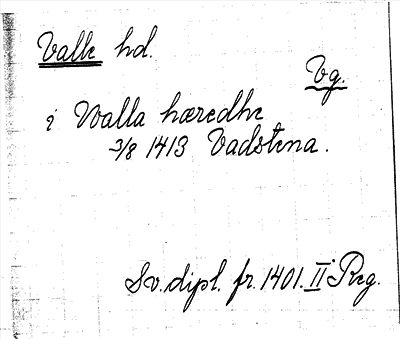 Valle hd.
Vg.
i Walla hæredhe
3/8 1413 Vadstena.
Sv. dipl. fr. 1401. II Reg.